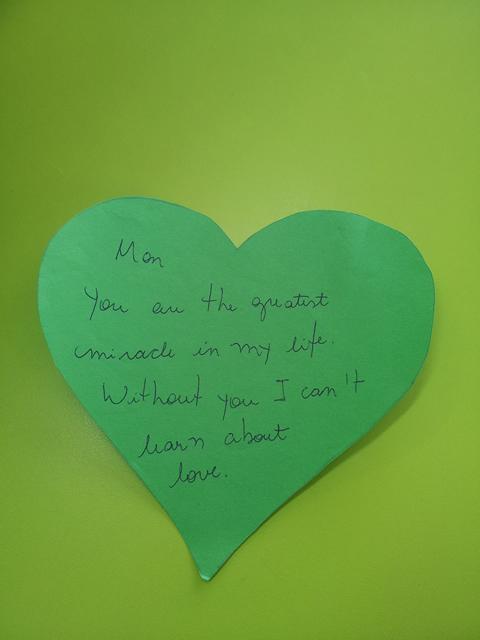 Mom
You are the greatest
miracle in my life.
Without you I can't
learn about
love.